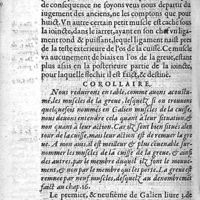 de consequence ne soyons veus nous departir du
iugement des anciens, ne les comptons que pour
huict. Vn autre certain petit muscle est caché sous
la ioincte, dans le iarret, ayant en son chef vn liga-
ment rond & puissant, lequel ligament naist pres
de la teste exterieure de l'os de la cuisse. Ce muscle
va aucunement de biais en l'os de la greue, estant
plus assis en la posterieure partie de la ioincte,
pour laquelle flechir il est faict, & destiné.
COROLLAIRE.
Nous redurirons en table, comme auons acoustu-
mé, les muscles de la greue, lesquelz si on trouuera
que soyent nommez en Galien muscles de la cuisse,
nous deuons entendre cela quant à leur situation, &
non quant à leur action. Car ilz sont bien situez des-
sus l'os de la cuisse, mais leur action est de mouuoir la
greue. A mon aduis il est meilleur, & plus conuenable, de sur-
nommer les muscles de la cuisse de la greue, & ain-
si des autres, par le membre duquel ilz sont le mouue-
ment, & non par les membres qui les porte. La greue est
meue par neuf muscles, desquelz au denombrement
faict au chap. 16.
Le premier, & neufiéme de Galien liure 2. de